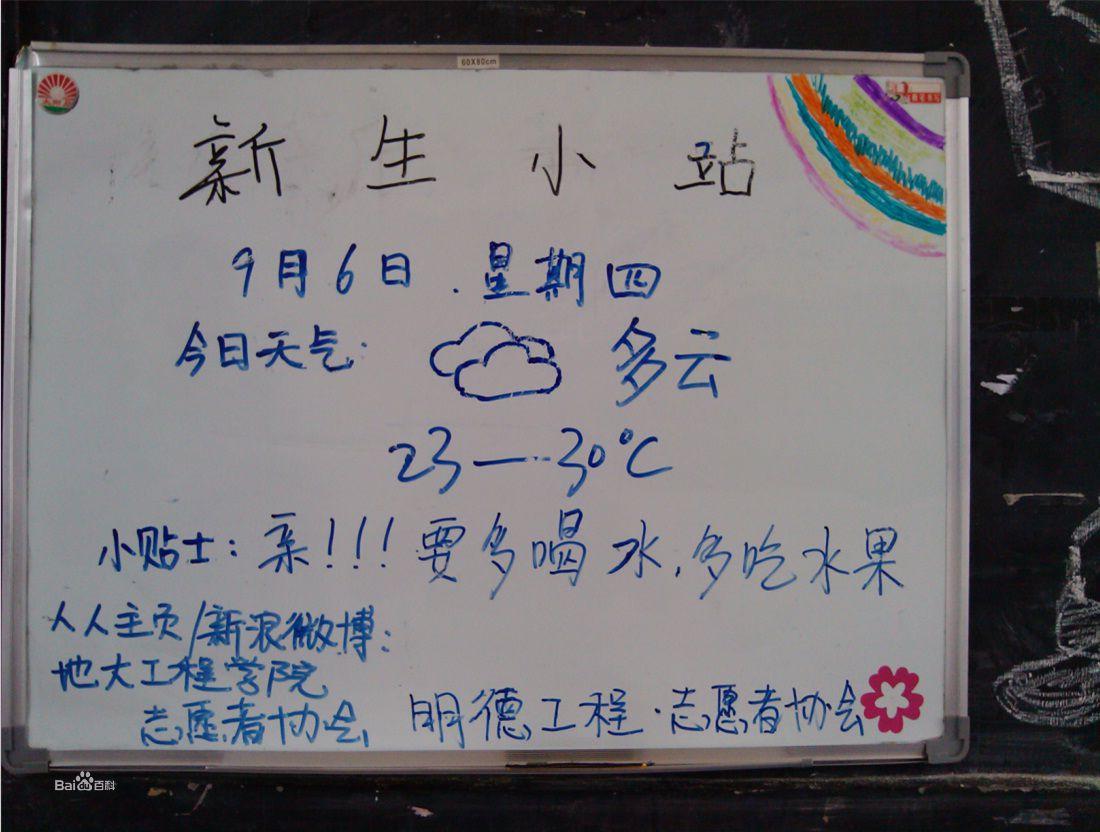 60X80cm
新生小站
9月6日.星期四
今日天气:多云
23—30℃
小贴士:亲!!!要多喝水,多吃水果
人人主页/新浪微博:
地大工程学院
志愿者协会
明德工程·志愿者协会
Bai百科